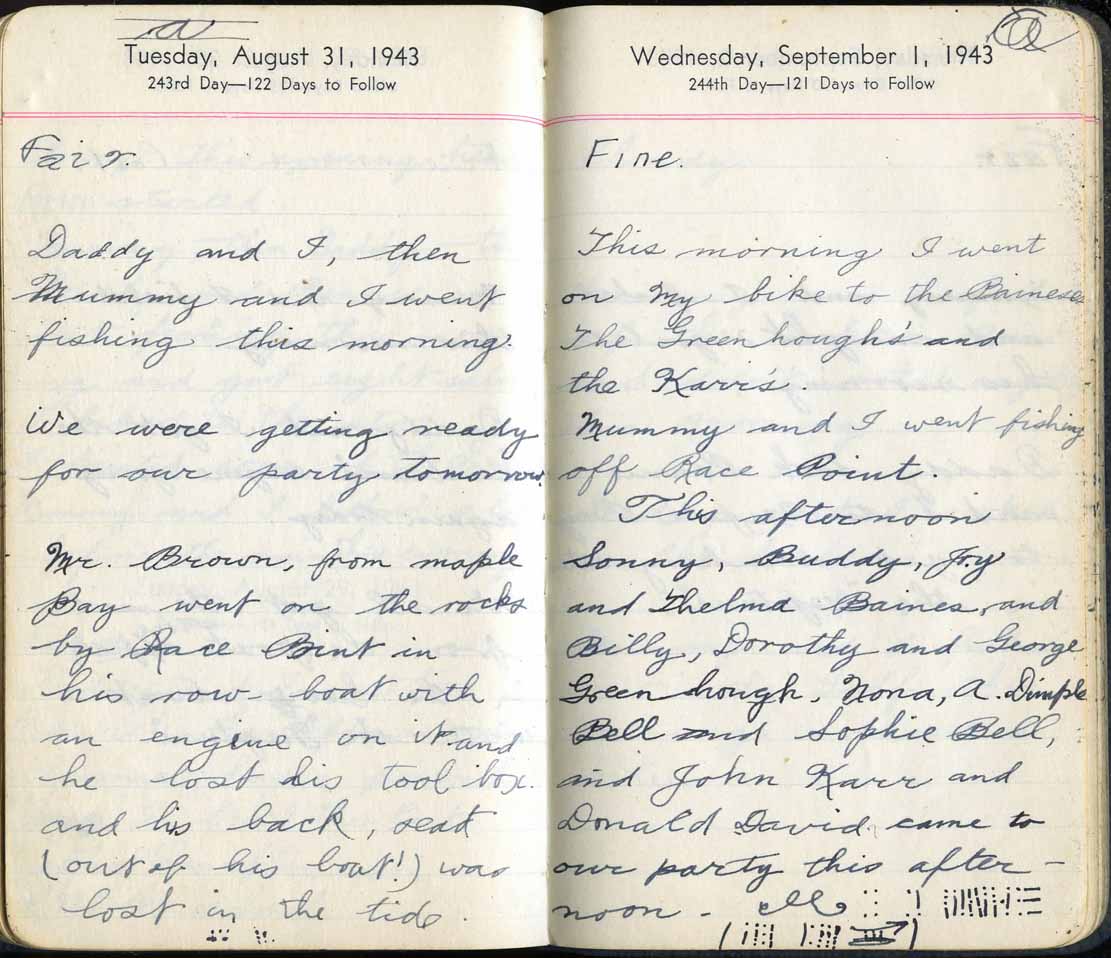 a
Tuesday, August 31, 1943
243rd Day—122 Days to Follow
Fair.
Daddy and I, then
Mummy and I went
fishing this morning.
We were getting ready
for our party tomorrow.
Mr. Brown, from maple
Bay went on the rocks
by Race Point in
his row boat with
an engine on it and
he lost his tool box.
and his back, seat
(out of his boat!) was
lost in the tide.
a
Wednesday, September 1, 1943
244th Day—121 Days to Follow
Fine.
This morning I went
on my bike to the
The Greenhough's and
the Karr's.
Mummy and I went fishing
off Race Point.
This afternoon
Sonny, Buddy, Joy
and Thelma Baines, and
Billy, Dorothy and George
Greenhough, Nona, A. Dimple
Bell and Sophie Bell,
and John Karr and
Donald David came to
our party this after-
noon.